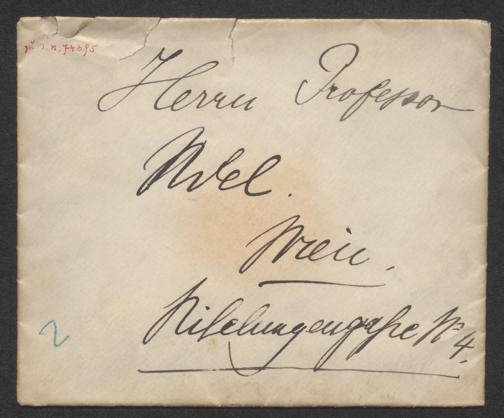 zu I.N. 74695
Herrn Professor
Udel.
Wien.
Nibelungengasse No 4.
2